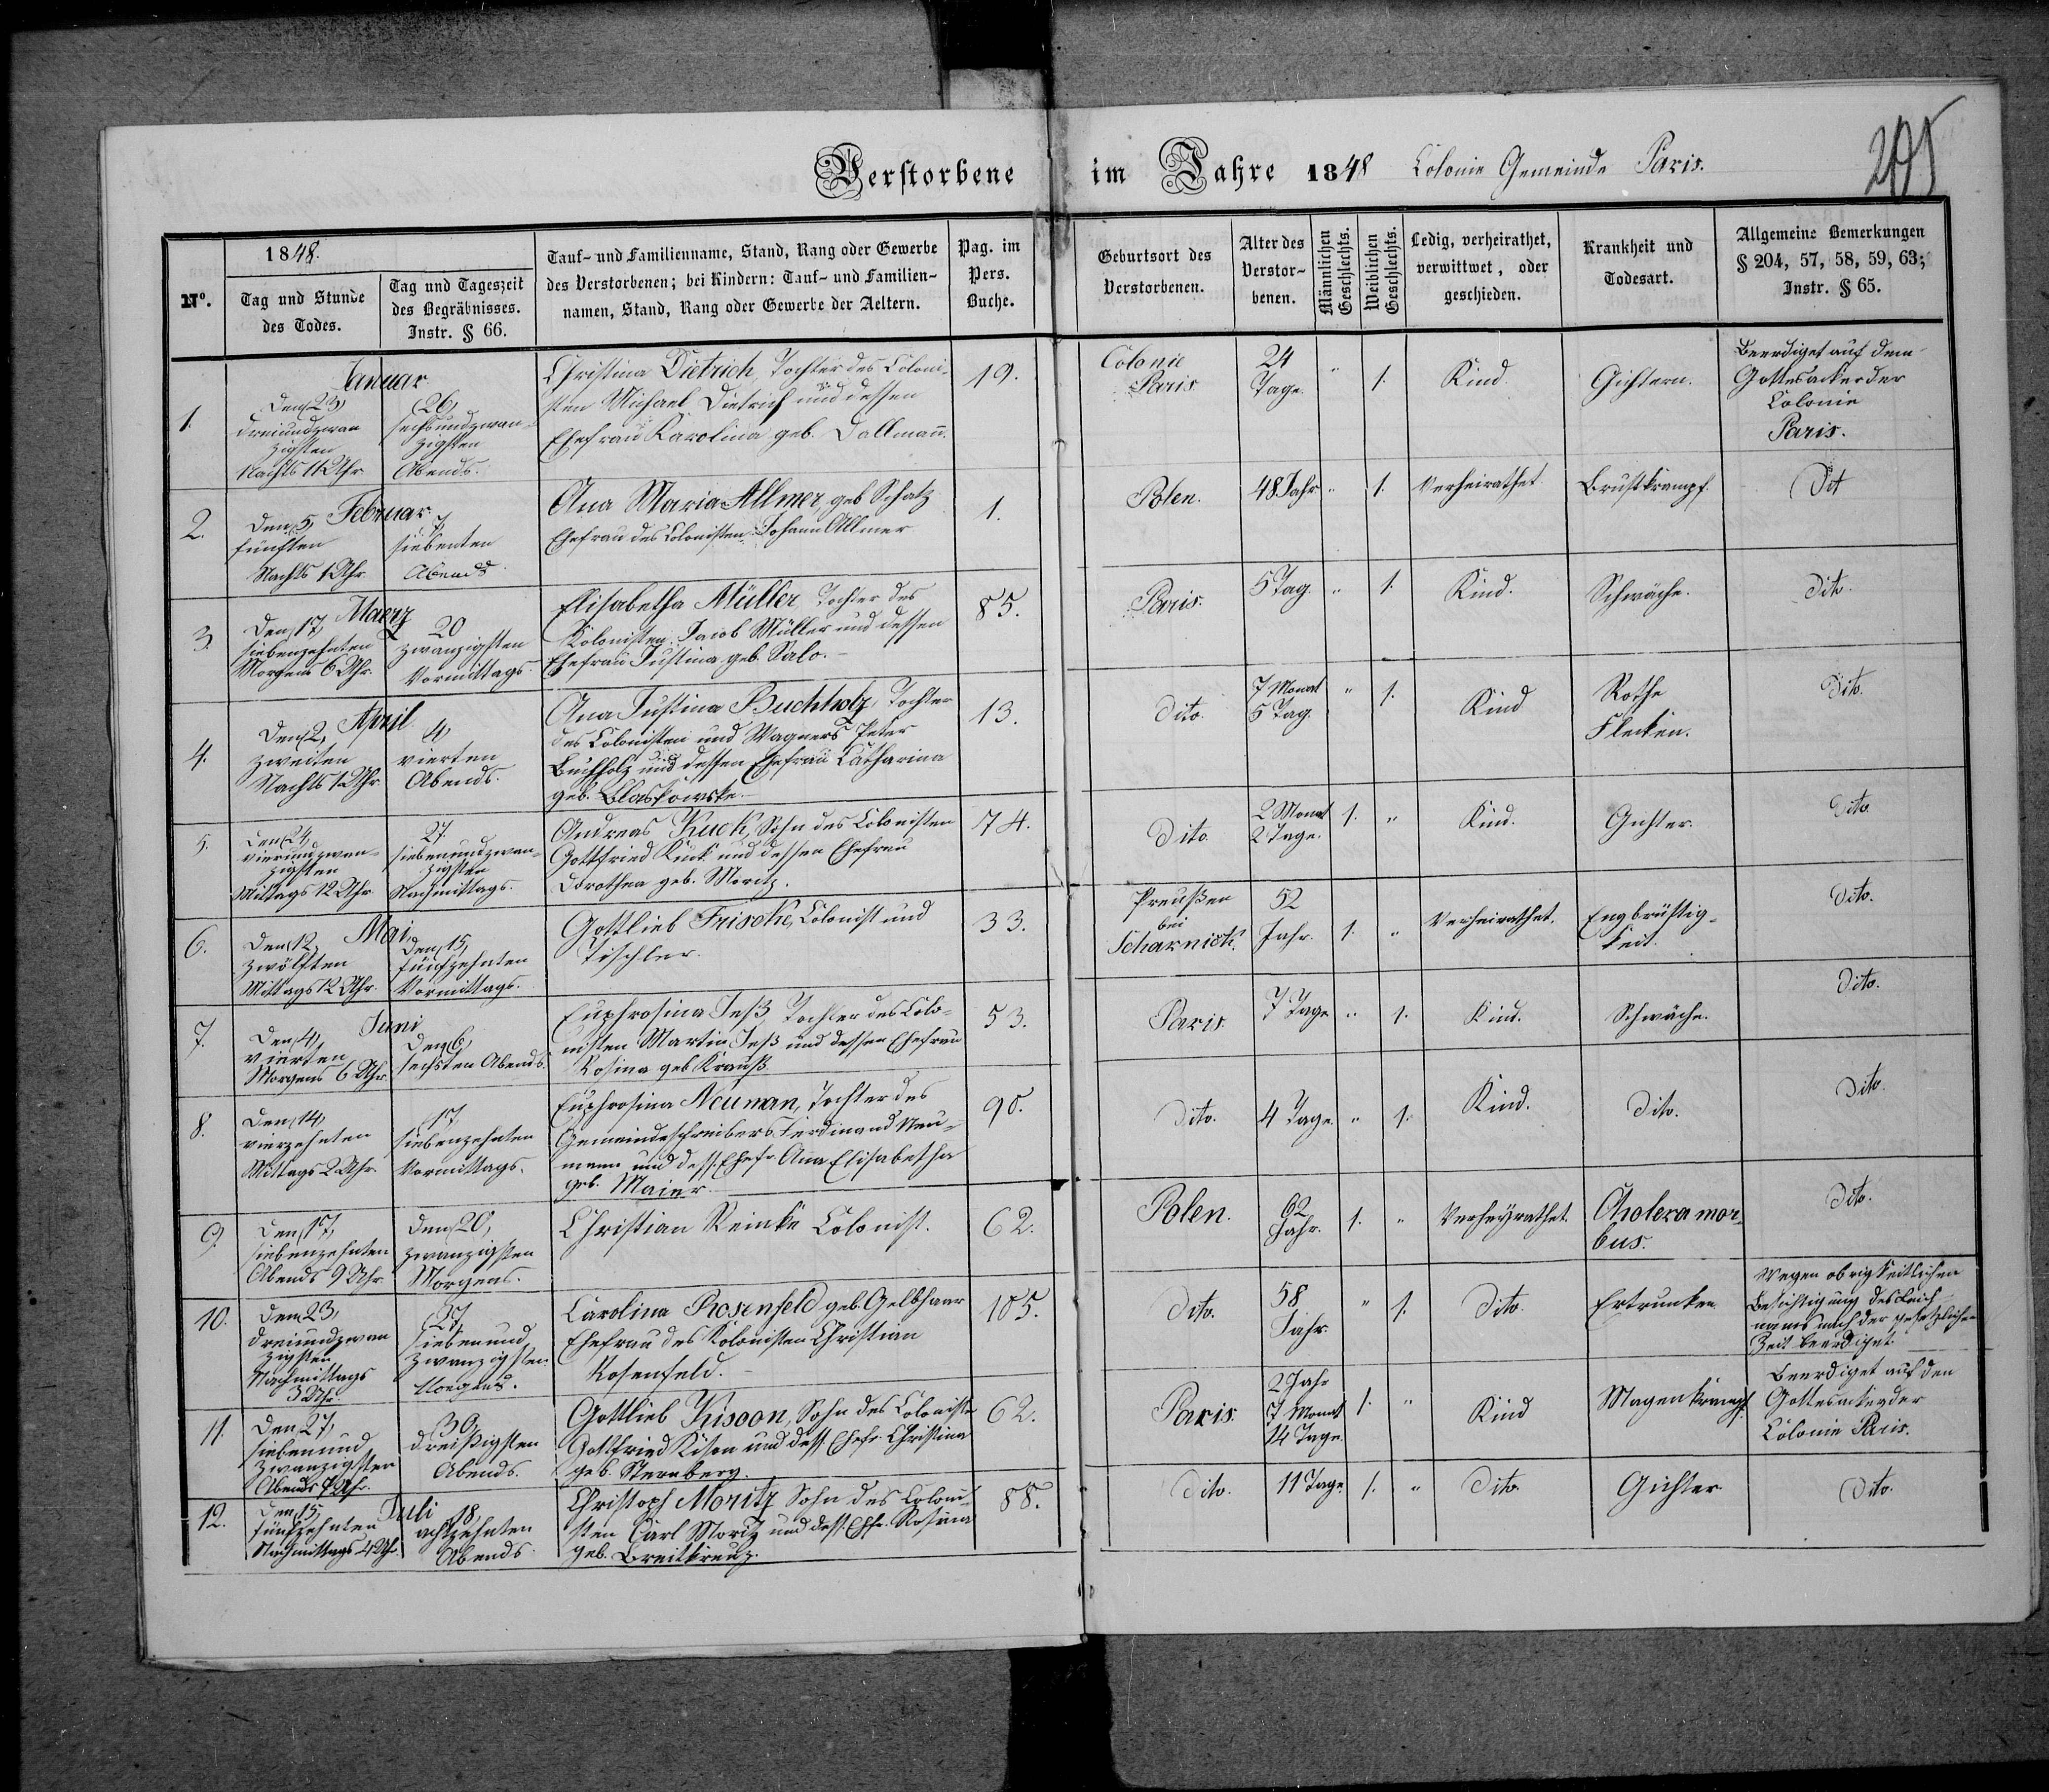 Verstorbene im Jahre 1848 Colonie Gemeinde Paris.
205
No.
1848.
Tag und Stunde
des Todes.
Tag und Tageszeit
des Begräbnisses.
Instr. § 66.
Tauf- und Familienname, Stand, Rang oder Gewerbe
des Verstorbenen; bei Kindern: Tauf- und Familien-
namen, Stand, Rang oder Gewerbe der Aeltern.
Pag. im
Pers.
Buche.
Geburtsort des
Verstorbenen.
Alter des
Verstor-
benen.
Männlichen
Geschlechts.
Weiblichen
Geschlechts.
Ledig, verheirathet,
verwittwet, oder
geschieden.
Krankheit und
Todesart.
Allgemeine Bemerkungen
§ 204, 57, 58, 59, 63;
Instr. § 65.
1.
Januar.
Den 23,
dreiundzwan
zigsten
Nachts 11 Uhr.
26,
sechsundzwan-
zigsten
Abends.
Christina Dietrich, Tochter des Coloni-
sten Michael Dietrich und dessen
Ehefrau Karolina geb. Dallmañ.
19.
Colonie
Paris
24
Tage.
"
1.
Kind.
Gichtern.
Beerdiget auf dem
Gottesacker der
Colonie
Paris.
2.
Februar.
Den 5,
fünften
Nachts 1 Uhr.
7,
siebenten
Abends.
Ana Maria Allmer, geb Schatz
Ehefrau des Colonisten Johann Allmer
1.
Polen.
48 Jahr.
"
1.
Verheirathet.
Brustkrampf.
Dit
3.
Maerz
Den 17,
siebenzehnten
Morgens 6 Uhr.
20
zwanzigsten
Vormittags
Elisabetha Müller, Tochter des
Kolonisten Jacob Müller und dessen
Ehefrau Justina geb. Salo.
85.
Paris.
5 Tag.
"
1.
Kind.
Schwäche.
Dito.
4.
April
Den 2,
zweiten
Nachts 1 Uhr.
4,
vierten
Abends.
Ana Justina Buchholz, Tochter
des Colonisten und Wagners Peter
Buchholz und dessen Ehefrau Catharina
geb. Blaskowske.
13.
Dito.
7 Monat
5 Tag.
"
1.
Kind
Rothe
Flecken.
Dito.
5.
Den 24,
vierundzwan-
zigsten
Mittags 12 Uhr.
27.
siebenundzwan-
zigsten
Nachmittags.
Andreas Kuck, Sohn des Colonisten
Gottfried Kuck und dessen Ehefrau
Dorothea geb. Moritz.
74.
Dito.
2 Monat
2 Tage.
1.
"
Kind.
Gichter.
Dito.
6.
Mai.
Den 12,
zwölften
Mittags 12 Uhr.
Den 15,
fünfzehnten
Vormittags.
Gottlieb Frischke, Colonist und
Tischler.
33.
Preußen
bei
Scharnick.
52
Jahr.
1.
"
Verheirathet.
Engbrüstig-
keit.
Dito.
7.
Juni
Den 4,
vierten
Morgens 6 Uhr.
Den 6,
sechsten Abends.
Euphrosina Jeß, Tochter des Colo-
nisten Martin Jeß und dessen Ehefrau
Rosina geb. Krauß.
53.
Paris.
7 Tage
"
1.
Kind.
Schwäche.
Dito.
8.
Den 14,
vierzehnten
Mittags 2 Uhr.
17,
siebenzehnten
Vormittags.
Euphrosina Neuman, Tochter des
Gemeindeschreibers Ferdinand Neu-
mann und dess. Ehefr. Ana Elisabetha
geb. Maier.
90.
Dito.
4 Tage.
"
1.
Kind.
Dito.
Dito.
9.
Den 17,
siebenzehnten
Abends 9 Uhr.
Den 20,
zwanzigsten
Morgens.
Christian Reinke Colonist.
62.
Polen.
62
Jahr.
1.
"
Verheyrathet.
Cholera mor-
bus.
Dito.
10.
Den 23,
dreiundzwan
zigsten
Nachmittags
3 Uhr.
27,
siebenund
zwanzigsten
Morgens.
Carolina Rosenfeld geb. Gelbhaar
Ehefrau des Kolonisten Christian
Rosenfeld.
105.
Dito.
58
Jahr.
"
1.
Dito.
Ertrunken.
Wegen obrigkeitlichen
Besichtigung des Leich-
nams nach der gesetzlichen
Zeit beerdiget.
11.
Den 27,
siebenund
zwanzigsten
Abends 7 Uhr.
30,
dreißigsten
Abends.
Gottlieb Kisoon, Sohn des Coloniste
Gottfried Kison und dess. Ehefr. Christina
geb. Sternberg.
62.
Paris.
2 Jahr
7 Monat
14 Tage.
1.
"
Kind
Magenkrampf.
Beerdiget auf den
Gottesacker der
Colonie Paris.
12.
Juli
Den 15,
fünfzehnten
Nachmittags 4 Uhr.
18,
achtzehnten
Abends.
Christoph Moritz Sohn des Coloni-
sten Carl Moritz und dess. Ehfr. Rosina
geb. Breitkreuz.
88.
Dito.
11 Tage.
1.
"
Dito.
Gichter.
Dito.